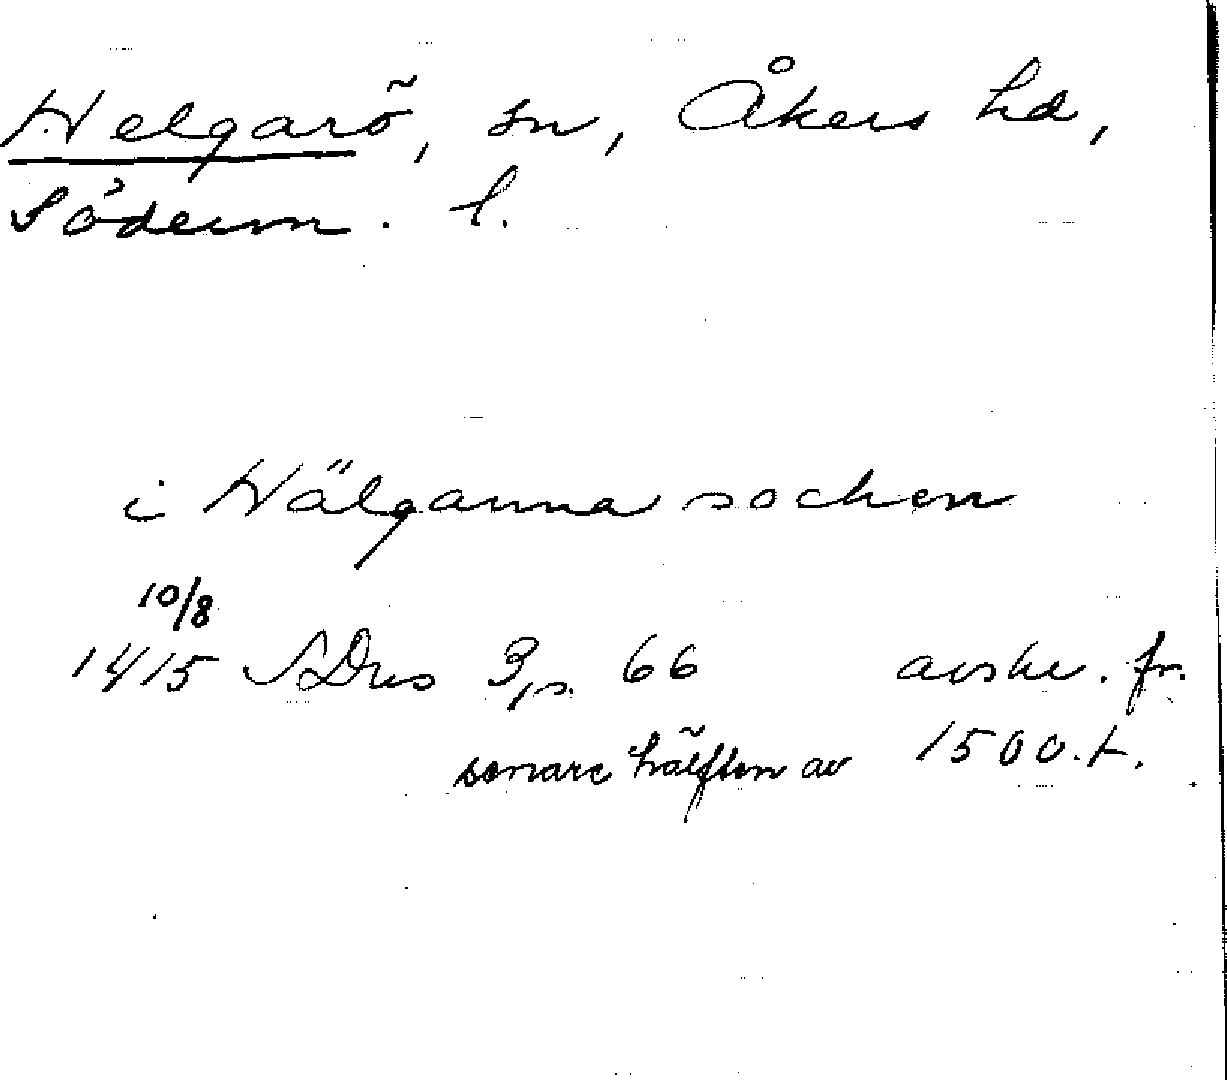 Helgarö, sn, Åkers hd,
Söderm. l.
i Hälganna socken
10/8
1415 SDns 3, s. 66 avskr. fr.
senare hälften av 1500.t.